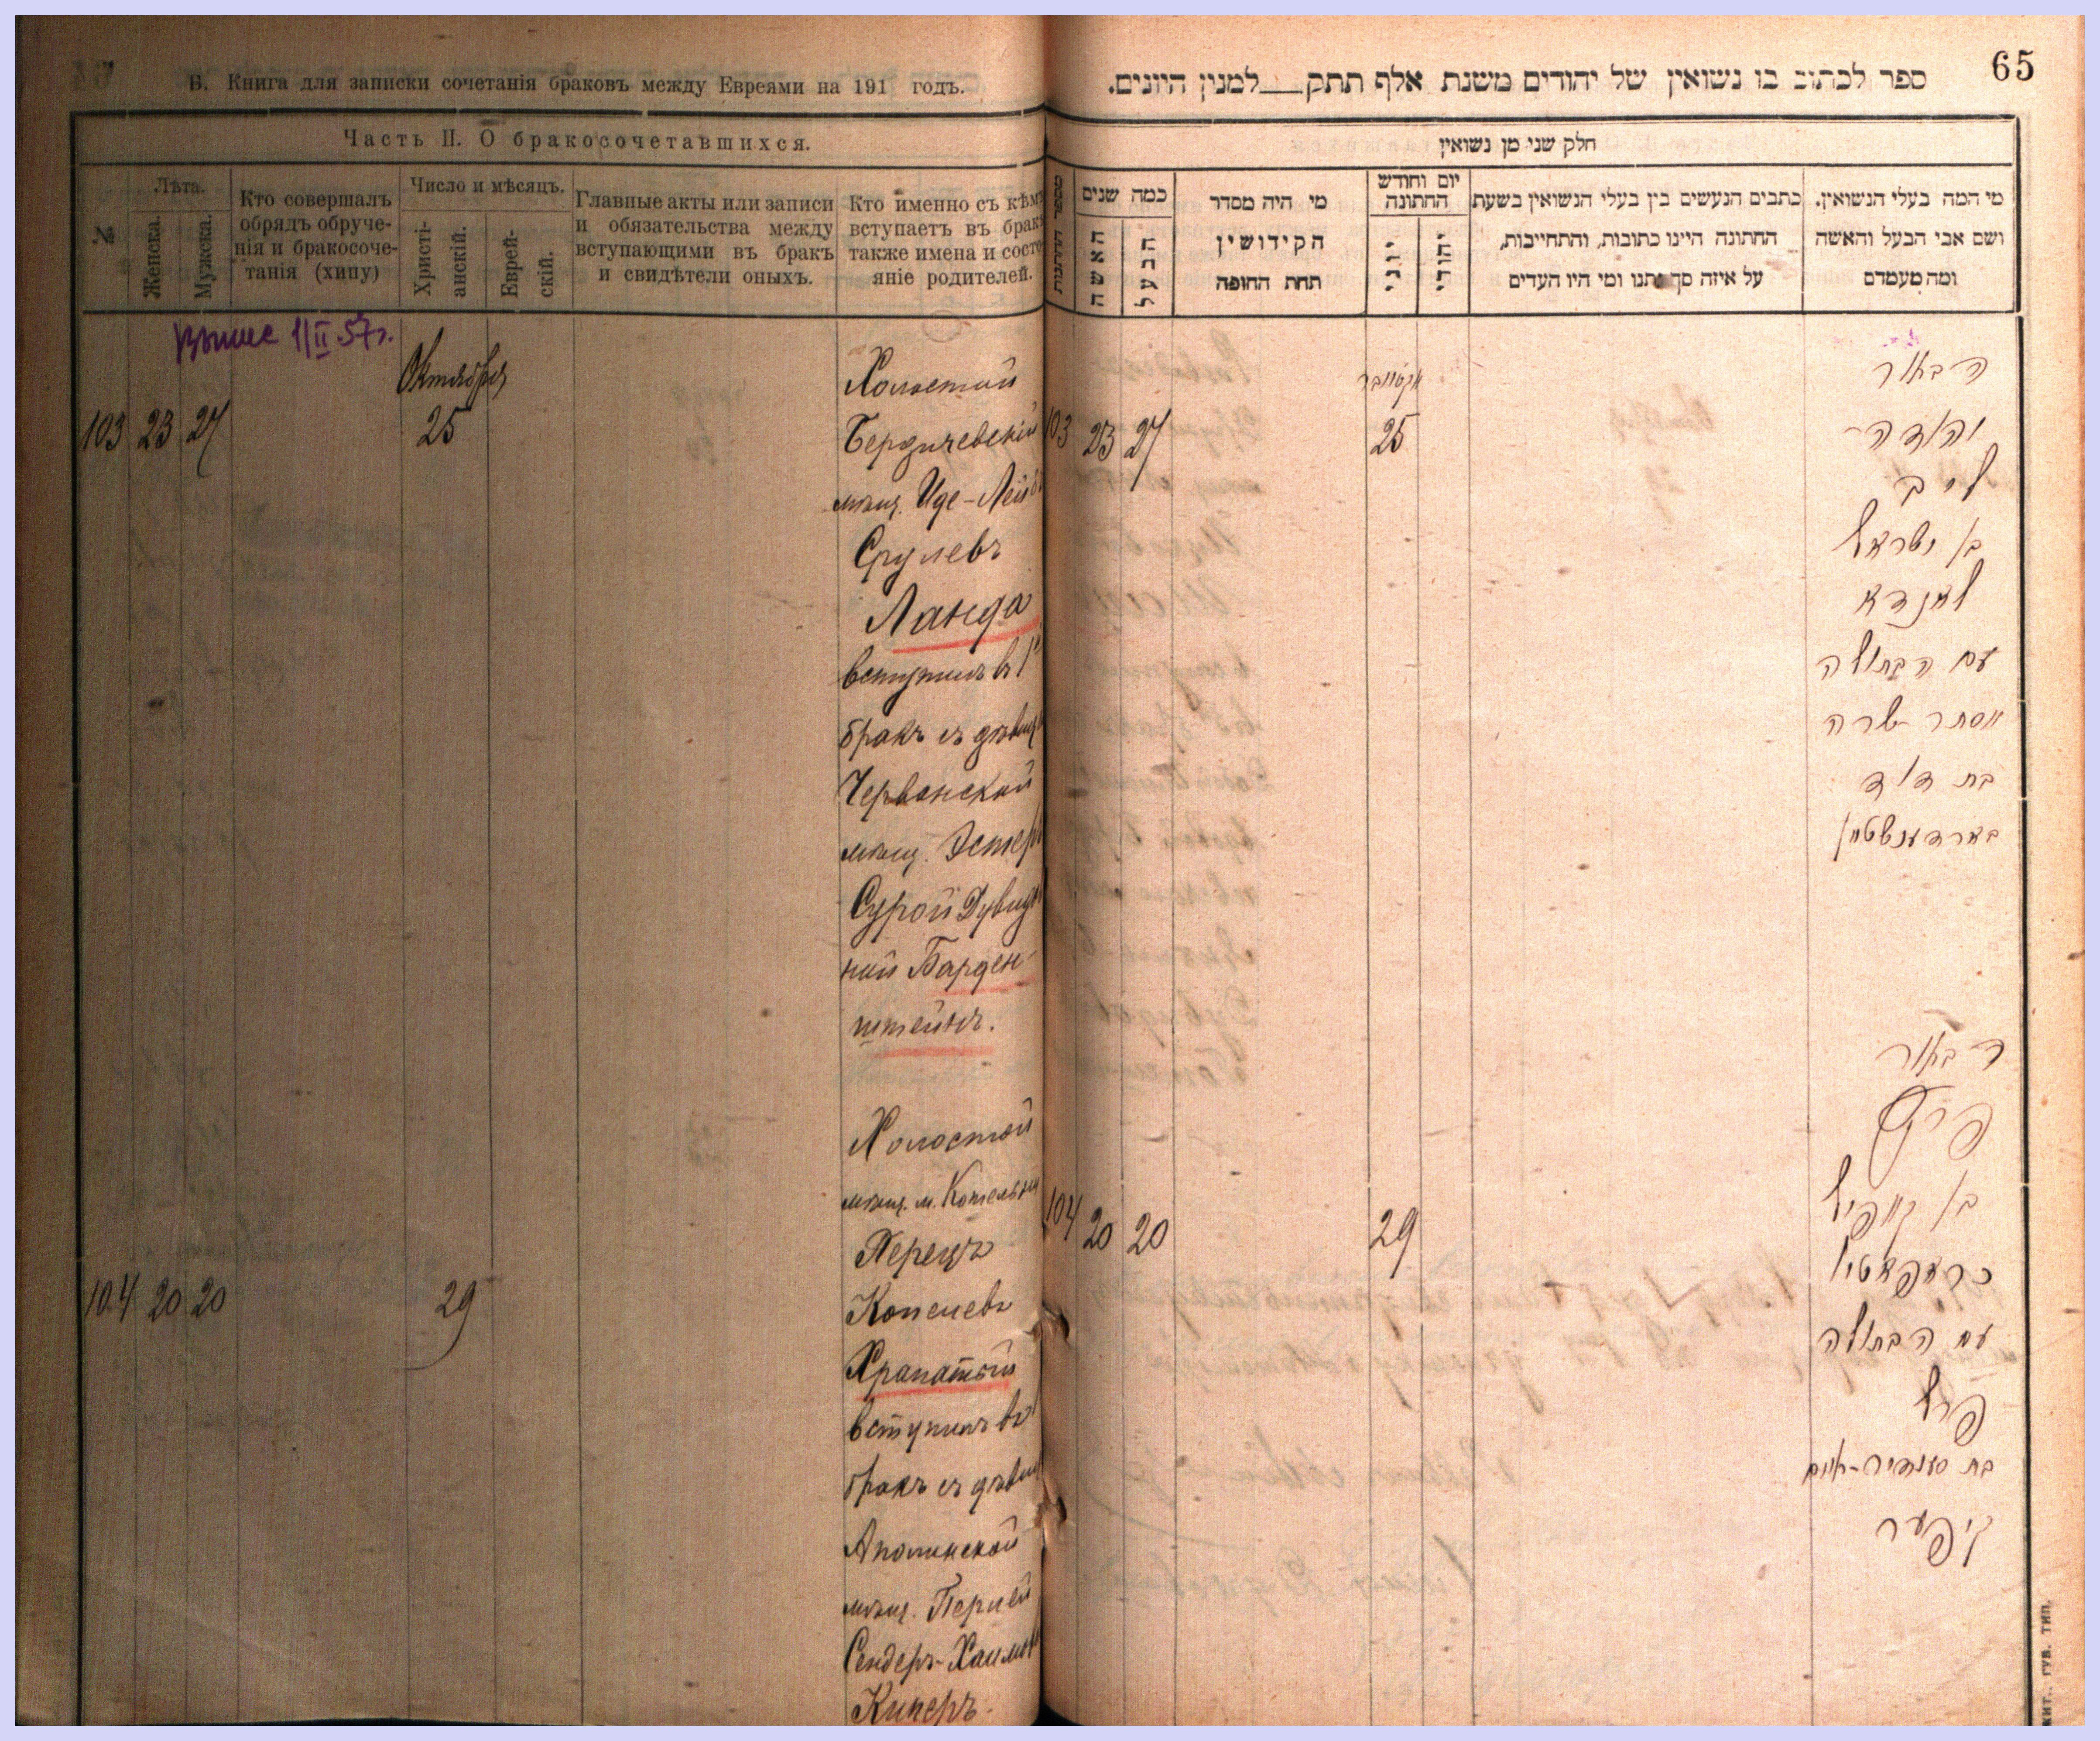 Б. Книга для записки сочетанія браковъ между Евреями на 191 годъ.
Часть II. О бракосочетавшихся.
№
Лѣта.
Женска.
Мужска.
Кто совершалъ
обрядъ обруче-
нія и бракосоче-
танія (хипу)
Число и мѣсяцъ.
Христі-
анскій.
Еврей-
скій.
Главные акты или записи
и обязательства между
вступающими въ бракъ
и свидѣтели оныхъ.
Кто именно съ кѣмъ
вступаетъ въ бракъ
также имена и состо-
яніе родителей.
1/II 57г.
Октября
103 23 27 25
Холостой
Бердичевскій
мѣщ. Иде-Лейбъ
Срулевъ
Ланда
вступилъ въ 1
бракъ съ дѣвиц
Червонской
мѣщ. Эстер
Сурой Дувидо
ной Барден-
штейнъ.
104 20 20 29
Холостой
мѣщ. м. Котельня
Перецъ
Копелевъ
Храпатый
вступилъ въ
бракъ съ дѣвиц
Аполинской
мѣщ. Перлей
Сендеръ-Хаимов
Киперъ.
65
ספר לכתוב בו נשואין של יהודים משנת אלף תתק למנין היונים.
חלק שני מן נשואין
מספר החתונות
כמה שנים
האשה
הבעל
מי היה מסדר
הקידושין
תחת החופה
יום וחודש
החתונה
יוני
יהודי
כתבים הנעשים בין בעלי הנשואין בשעת
החתונה היינו כתובות, והתחייבות,
על איזה סך נתנו ומי היו העדים
מי המה בעלי הנשואין.
ושם אבי הבעל והאשה
ומה מעמדם
אקטובר
103 23 27 25
הבאור
יהודה
ליב
בן ישראל
לאנדא
עם הבתולה
אסתר שרה
בת דוד
בארדענשטיין
104 20 20 29
הבאור
פרץ
בן קאפיל
כראפאטי
עם הבתולה
פרל
בת סענדיר-חיים
קיפער
ЖИТ. ГУБ. ТИП.